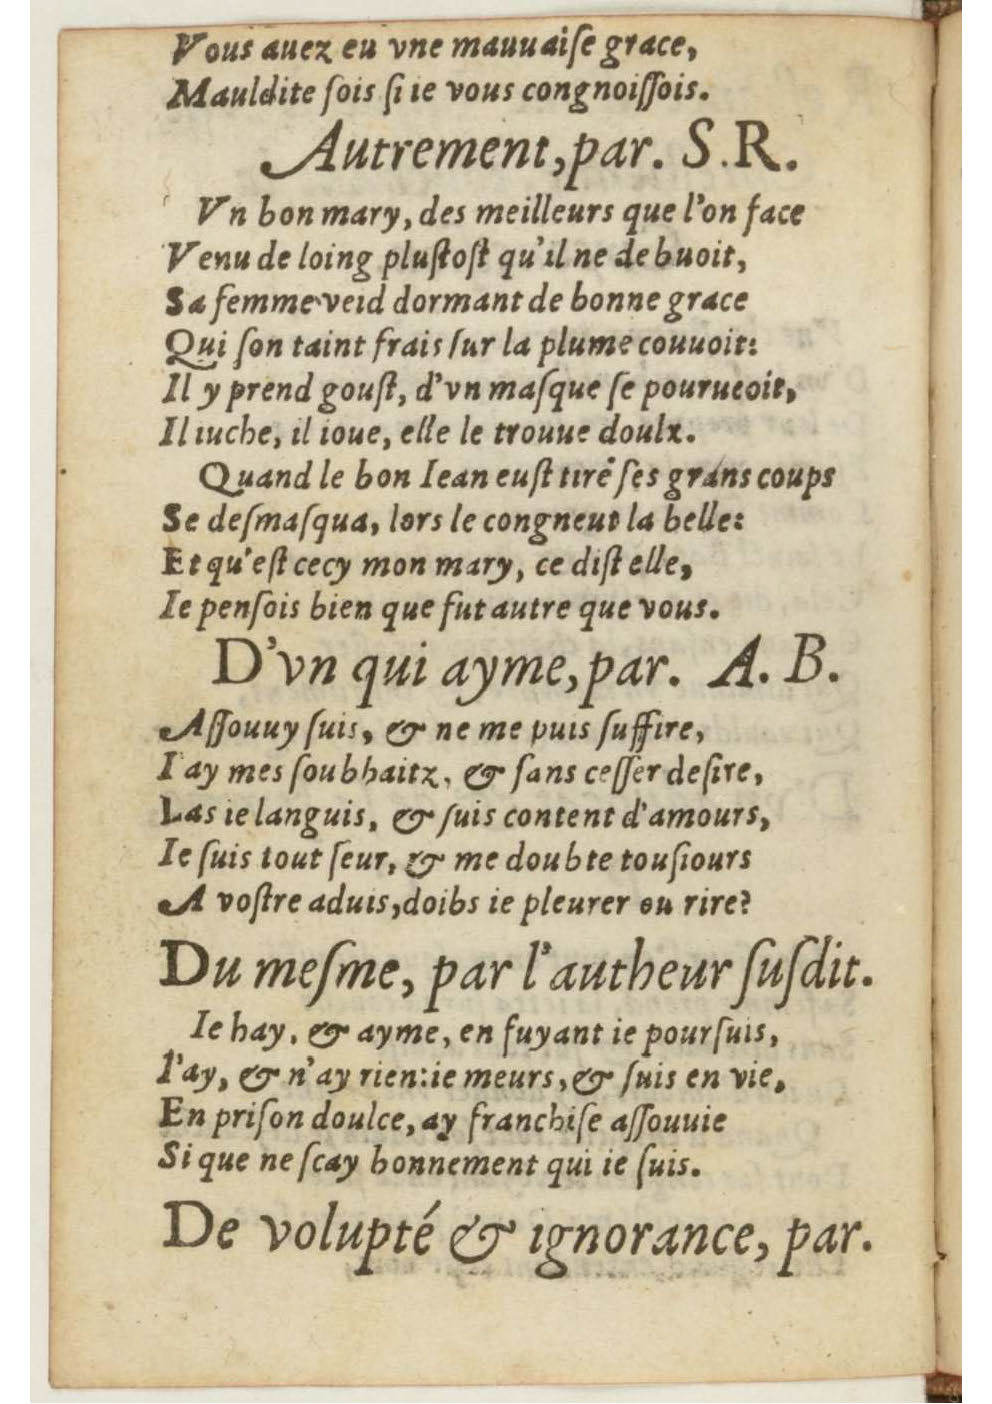 Vous auez eu vne mauuaiſe grace,
Mauldite ſois ſi ie vous congnoiſſois.
Autrement, par. S.R.
Vn bon mary, des meilleurs que l'on face
Venu de loing pluſtoſt qu'il ne debuoit,
Sa femme veid dormant de bonne grace
Qui ſon taint frais ſur la plume couuoit:
Il y prend gouſt, d'vn maſque ſe pourueoit,
Il iuche, il ioue, elle le trouue doulx.
Quand le bon Iean euſt tiré ſes grans coups
Se deſmaſqua, lors le congneut la belle:
Et qu'eſt cecy mon mary, ce diſt elle,
Ie penſois bien que fut autre que vous.
D'vn qui ayme, par. A. B.
Aſſouuy ſuis, & ne me puis ſuffire,
I'ay mes ſoubhaitz, & ſans ceſſer deſire,
Las ie languis, & ſuis content d'amours,
Ie ſuis tout ſeur, & me doubte touſiours
A voſtre aduis, doibs ie pleurer ou rire?
Du meſme, par l'autheur ſuſdit.
Ie hay, & ayme, en fuyant ie pourſuis,
I'ay, & n'ay rien: ie meurs, & ſuis en vie,
En priſon doulce, ay franchiſe aſſouuie
Si que ne ſcay bonnement qui ie ſuis.
De volupté & ignorance, par.